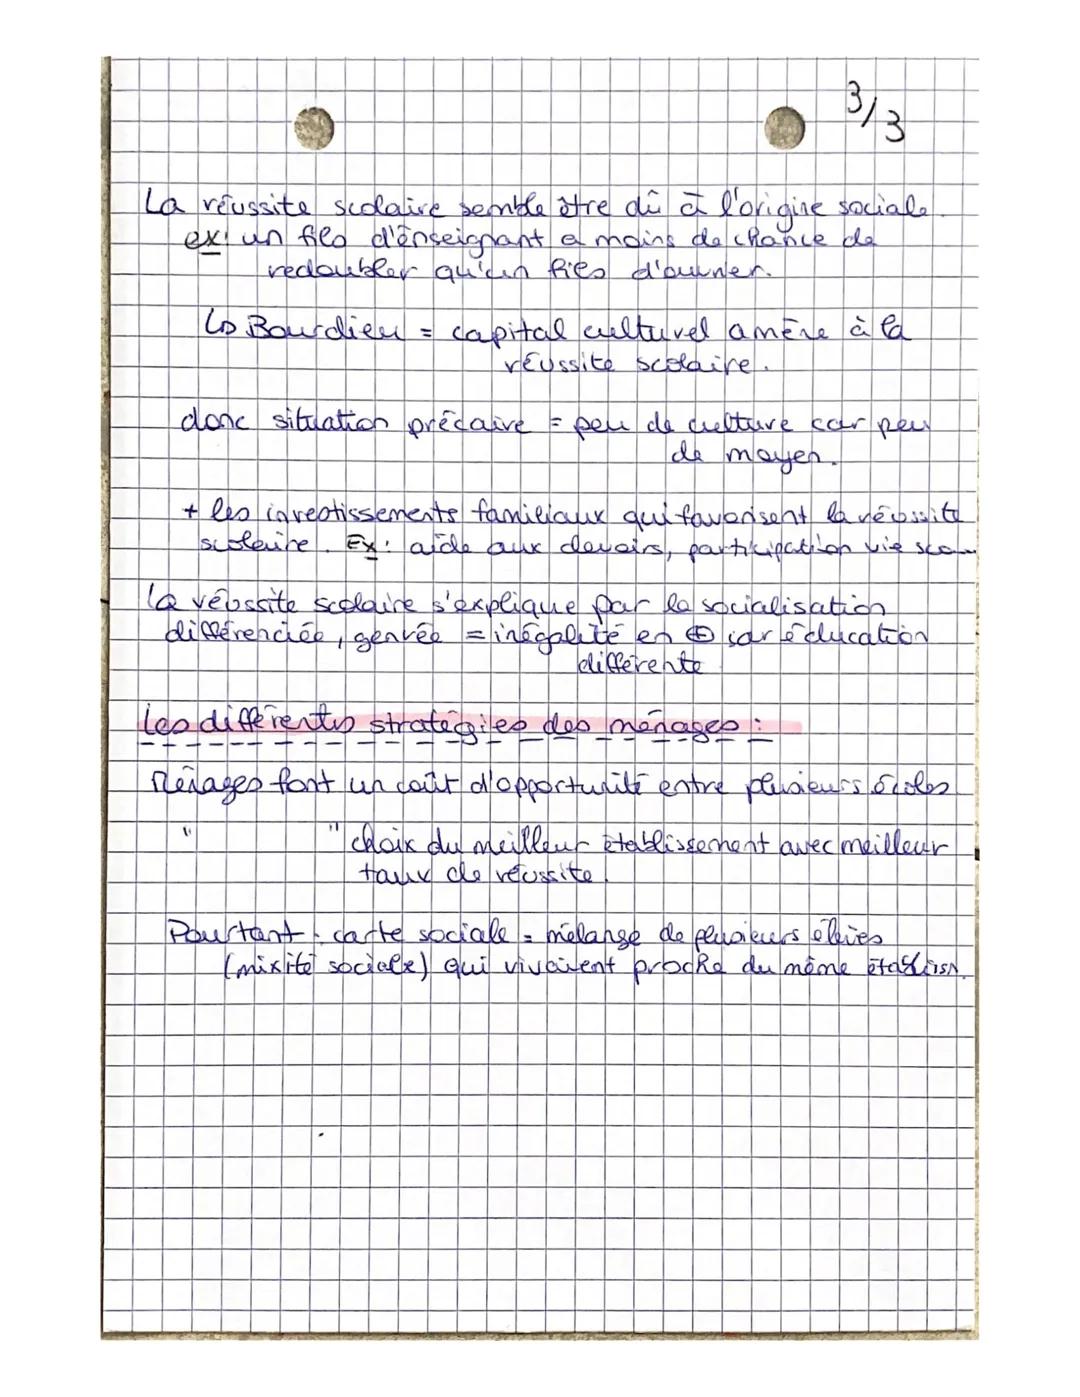 3/3
La réussite scolaire semble être dû à l'origine sociale.
ex: un fils d'enseignant a moins de chance de
redoubler qu'un fils d'ouvrier.
↳ Bourdieu = capital culturel amène à la
réussite scolaire.
donc situation précaire = peu de culture car peu
de moyen.
+ les investissements familiaux qui favorisent la réussite
scolaire. Ex: aide aux devoirs, participation vie sco
la réussite scolaire s'explique par la socialisation
différenciée, genrée = inégalité en ⊕ car éducation
différente
Les différentes stratégies des ménages :
Ménages font un coût d'opportunité entre plusieurs écoles
" " choix du meilleur établissement avec meilleur
taux de réussite.
Pourtant : carte sociale = mélange de plusieurs élèves
(mixité sociale) qui vivaient proche du même établissn.